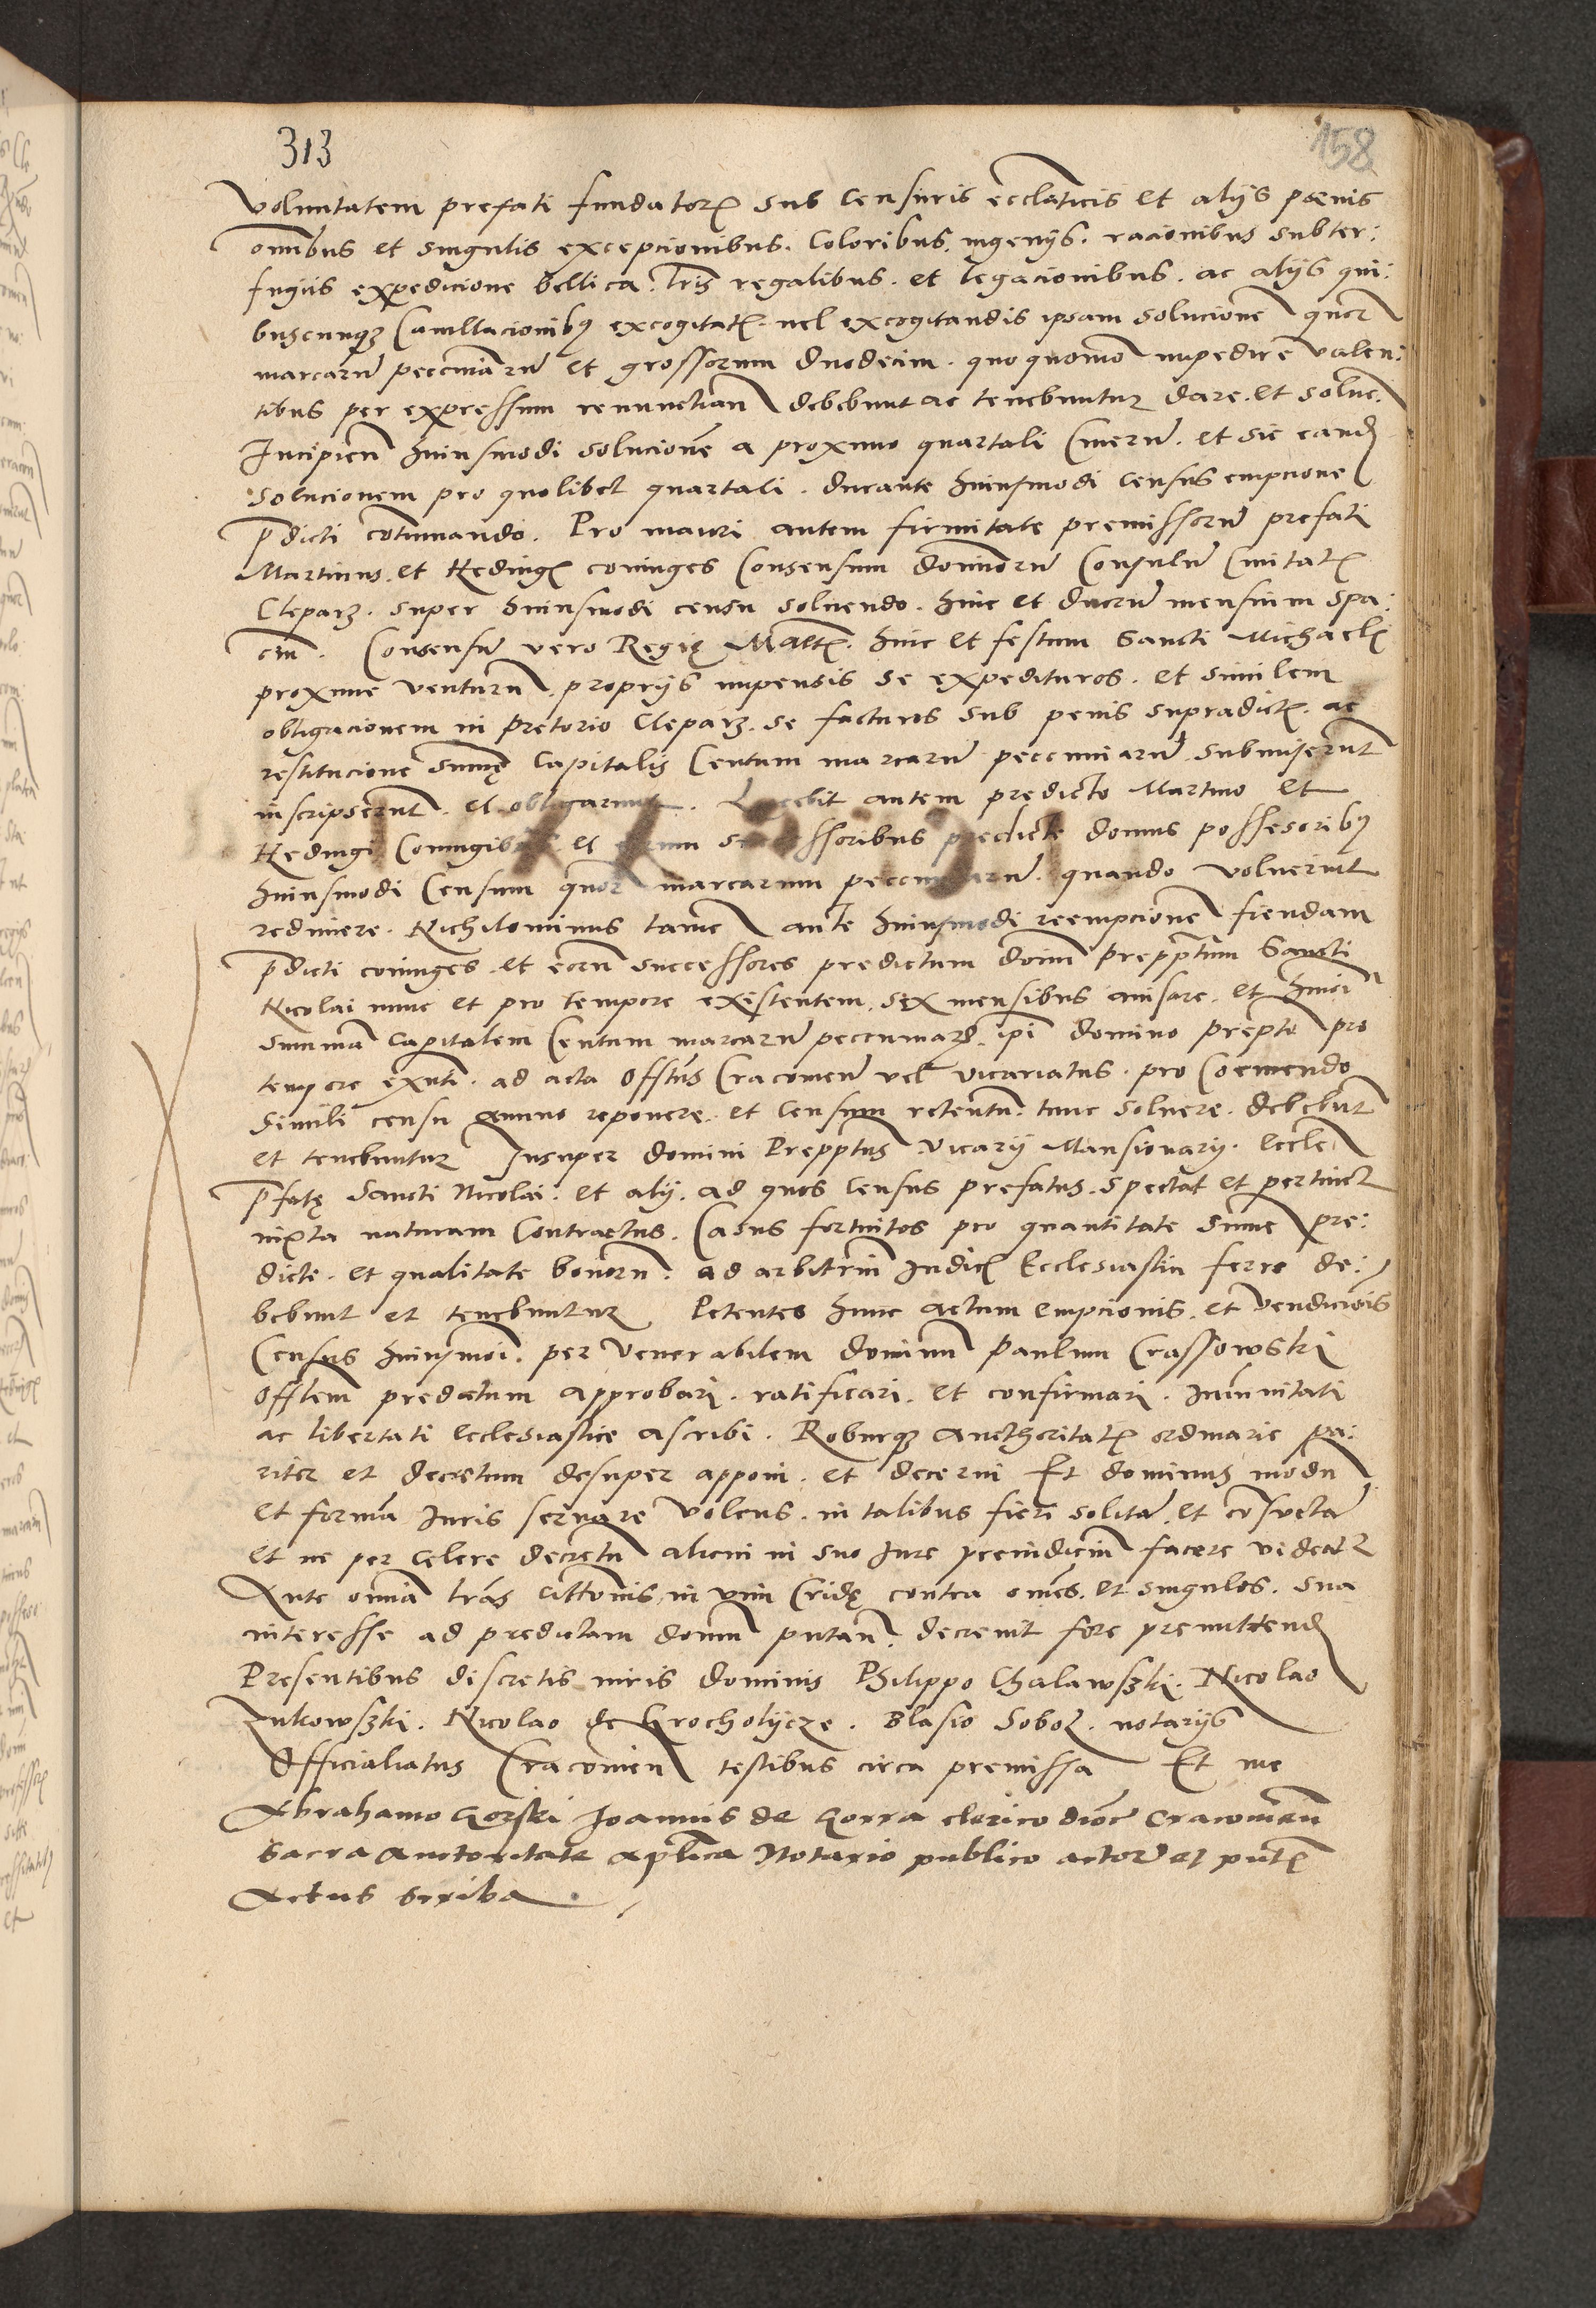 313
158
voluntatem prefati fundatoris sub Censuris eccl̄aticis et alijs pœnis
omnibus et singulis excepcionibus. Coloribus. ingenijs. racionibus subter:
fugiis expedicione bellica. lris regalibus. et legacionibus. ac alijs qui:
buscunqȝ Cauillacionibꝰ excogitatis. uel excogitandis ipsam Solucionē quatuor
marcarū peccuniarū et grossorum duodecim. quo quomō impedire valen:
tibus per expressum renunctian debebunt ac tenebuntur dare. et soluere.
Incipien huiusmodi solucionē a proximo quartali Cinerū. et sic eand
Solucionem pro quolibet quartali. durante huiusmodi Census empcione
p̄dicti cōtinuando. Pro maiori autem firmitate premissorū prefati
Martinus. et Hedingis coniuges Consensum dominorū Consulū Ciuitatis
Cleparȝ. super huiusmodi censu soluendo. hinc et duorū mensium spa:
ciū. Consensū vero Regię Mattis. hinc et festum Sancti Michaelis
proxime venturū. proprijs impensis se expedituros. et similem
obligacionem in pretorio Cleparȝ. se facturos sub penis supradictis. ac
restitucione summę Capitalis Centum marcarū peccuniarū submiserunt
inscripserunt. et obligarunt. Licebit autem predicto Martino et
Hedingi Coniugibus et eorum successoribus predicte domus possesoribꝰ
huiusmodi Censum quatuor marcarum peccuniarū. quando voluerint
redimere. Nichilominus tamē ante huiusmodi reempcionē fiendam
p̄dicti coniuges. et eorū successores predictum dominū prepptum Sancti
Nicolai nunc et pro tempore existentem. sex mensibus auisare. et huiōi
summā Capitalem Centum marcarū peccuniarū. ipi domino prepto pro
tempore exnti. ad acta Offtus Cracouien vel vicariatus. pro Coemendo
Simili censu annuo reponere. et Censum retentū. tunc soluere. debebunt
et tenebuntur Insuper domini Prepptus Vicarij Mansionarij. Eccle
p̄fatę Sancti Nicolai. et alij. ad quos Census prefatus. spectat et pertinet
iuxta naturam Contractus. Casus fortuitos pro quantitate summe pre:
dicte. et qualitate bonorū. ad arbitriū Iudicis Ecclesiastici ferre de:
bebunt et tenebuntur Petentes hunc actum empcionis. et vendicionis
Census huiusmoi. per Venerabilem dominū Paulum Crassowski
Offtem predictum Approbari. ratificari. et confirmari. Inmunitati
ac libertati Ecclesiastice ascribi. Roburqȝ Auctheritatis ordinarie pa:
riter et decretum desuper apponi. et decerni Et dominus modū
et formā Iuris seruare volens. in talibus fieri solitā. et cōsuetā
et ne per celere decretū alicui in suo Iure preiudiciū facere videatur
Ante omnia lrās Cittonis in vim Cridę contra omēs. et singulos. sua
interesse ad predictam domū putan. decreuit fore premittend
Presentibus discretis viris dominis Philippo Chalawsȝki. Nicolao
Zukowsȝki. Nicolao de Grocholijcze. Blasio Sobol. notarijs
Officialiatus Cracouien testibus circa premissa Et me
Abrahamo Gorski Joannis de Gorra clerico dioc̄ Cracouien
Sacra Auctoritate Aplica Notario publico actorū et pntis
Actus scriba.